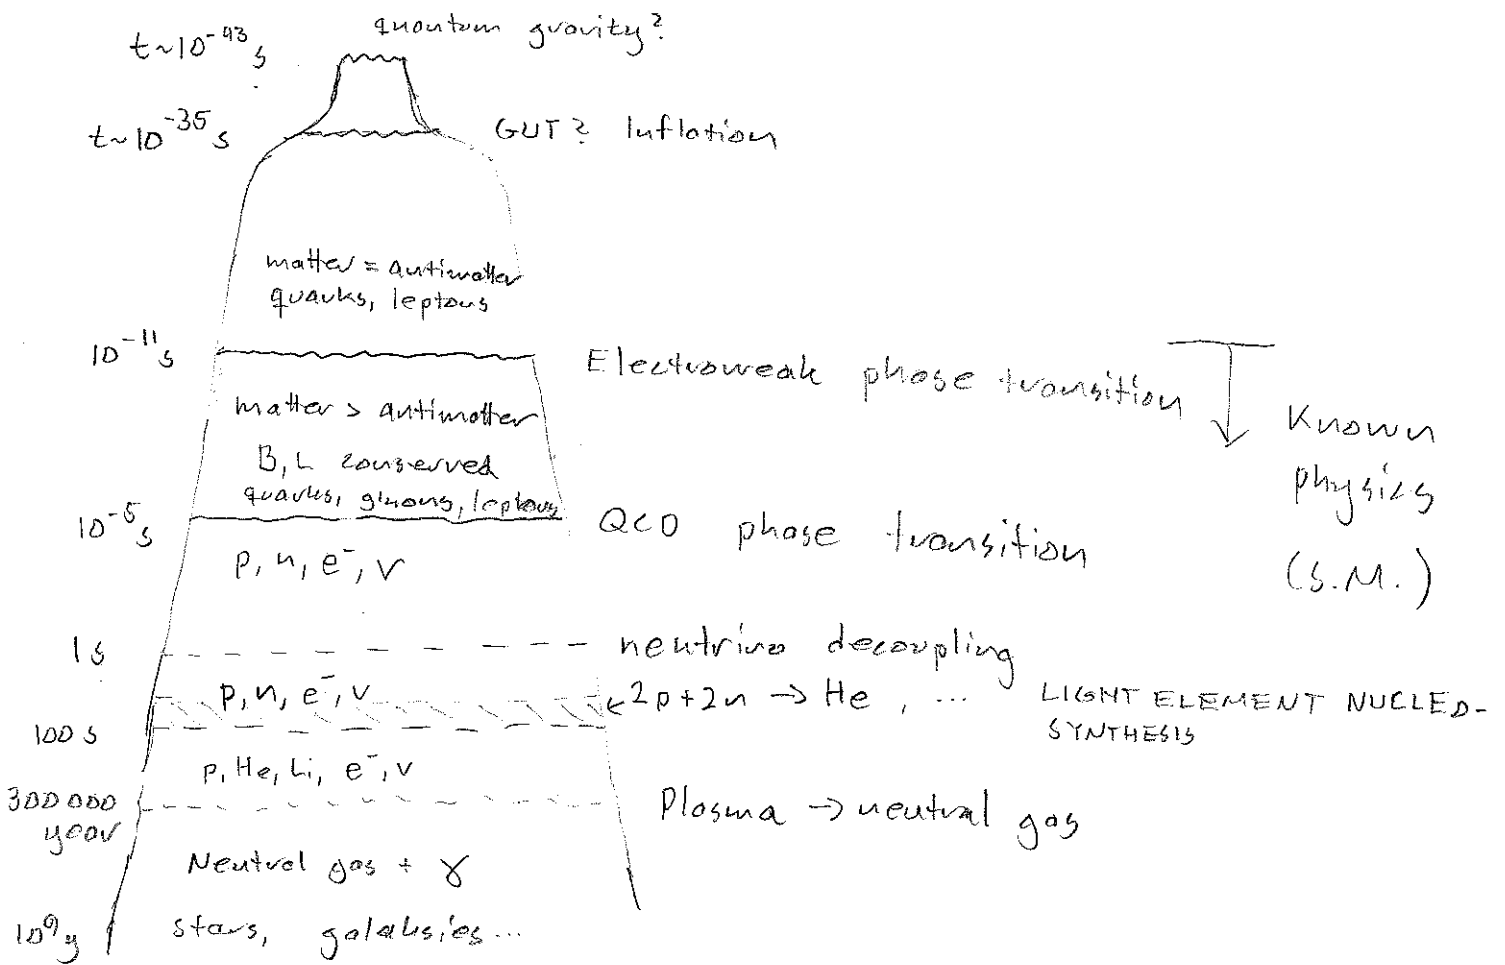 quantum gravity?
t~10⁻⁴³ s
t~10⁻³⁵ s
GUT? Inflation
matter = antimatter
quarks, leptons
10⁻¹¹ s
Electroweak phase transition
matter > antimatter
B, L conserved
quarks, gluons, leptons
Known
physics
(S.M.)
10⁻⁵ s
QCD phase transition
p, n, e⁻, ν
1s
neutrino decoupling
p, n, e⁻, ν
2p+2n → He, ...
LIGHT ELEMENT NUCLEO-
SYNTHESIS
100 s
p, He, Li, e⁻, ν
300 000
year
Plasma → neutral gas
Neutral gas + γ
10⁹ y
stars, galaksies...